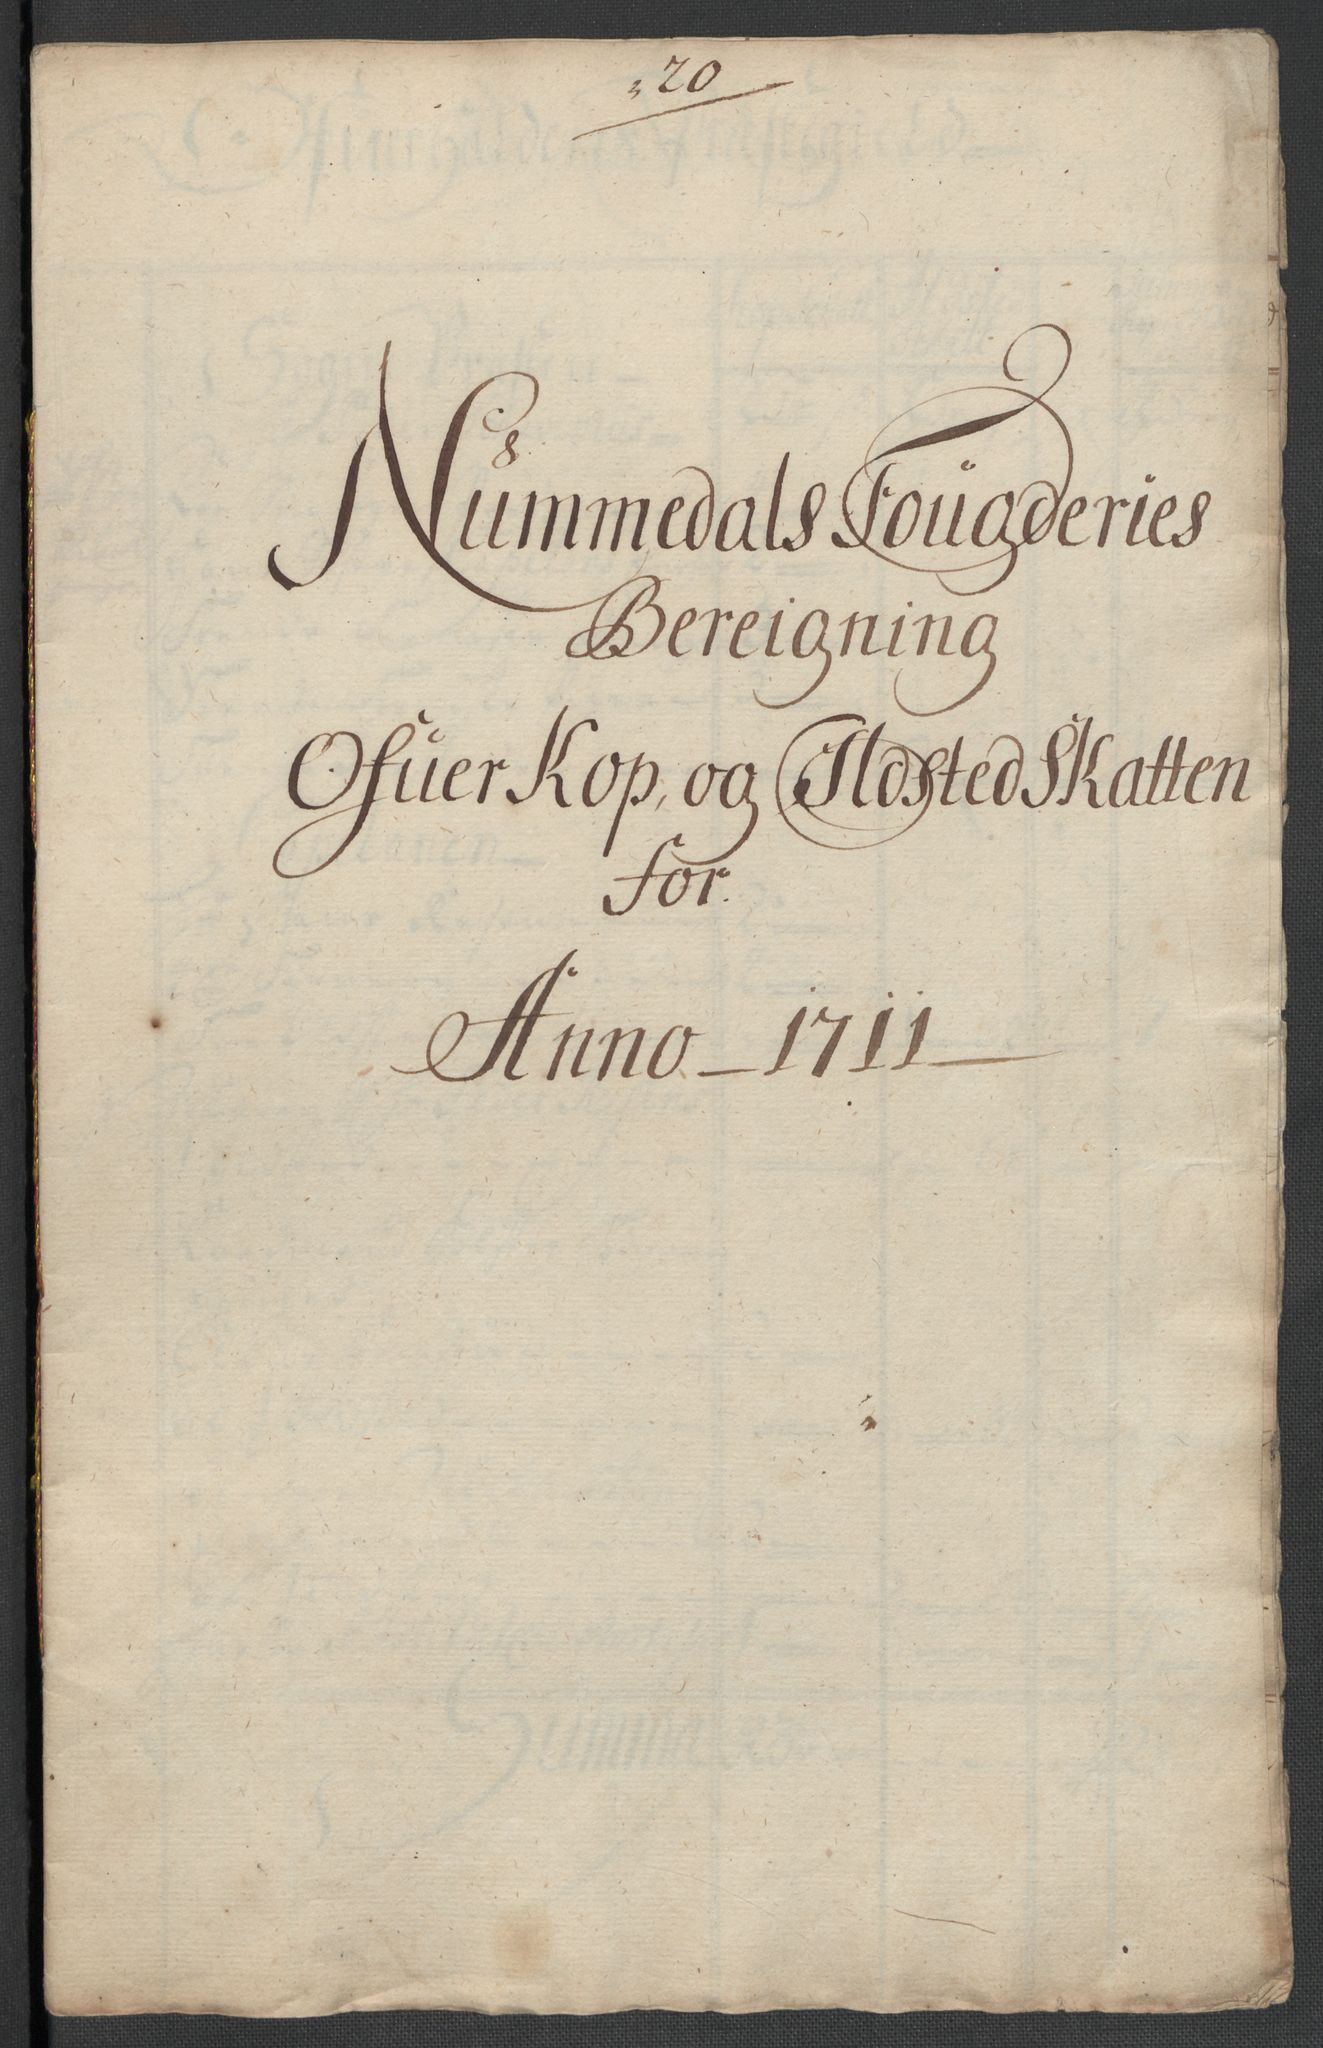 20
Nummedals Fougderies
Bereigning
Ofuer Kop, og Ildsted Skatten
for
Anno 1711